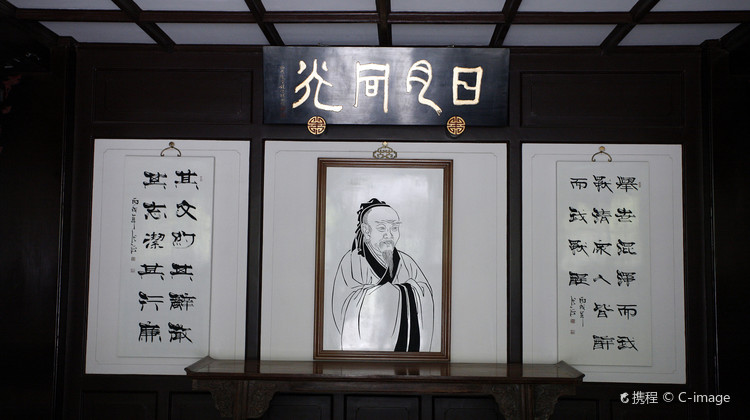 日月同光
舉世混濁而我
獨清衆人皆醉
而我獨醒
其文約其辭微
其志潔其行廉
携程 © C-image